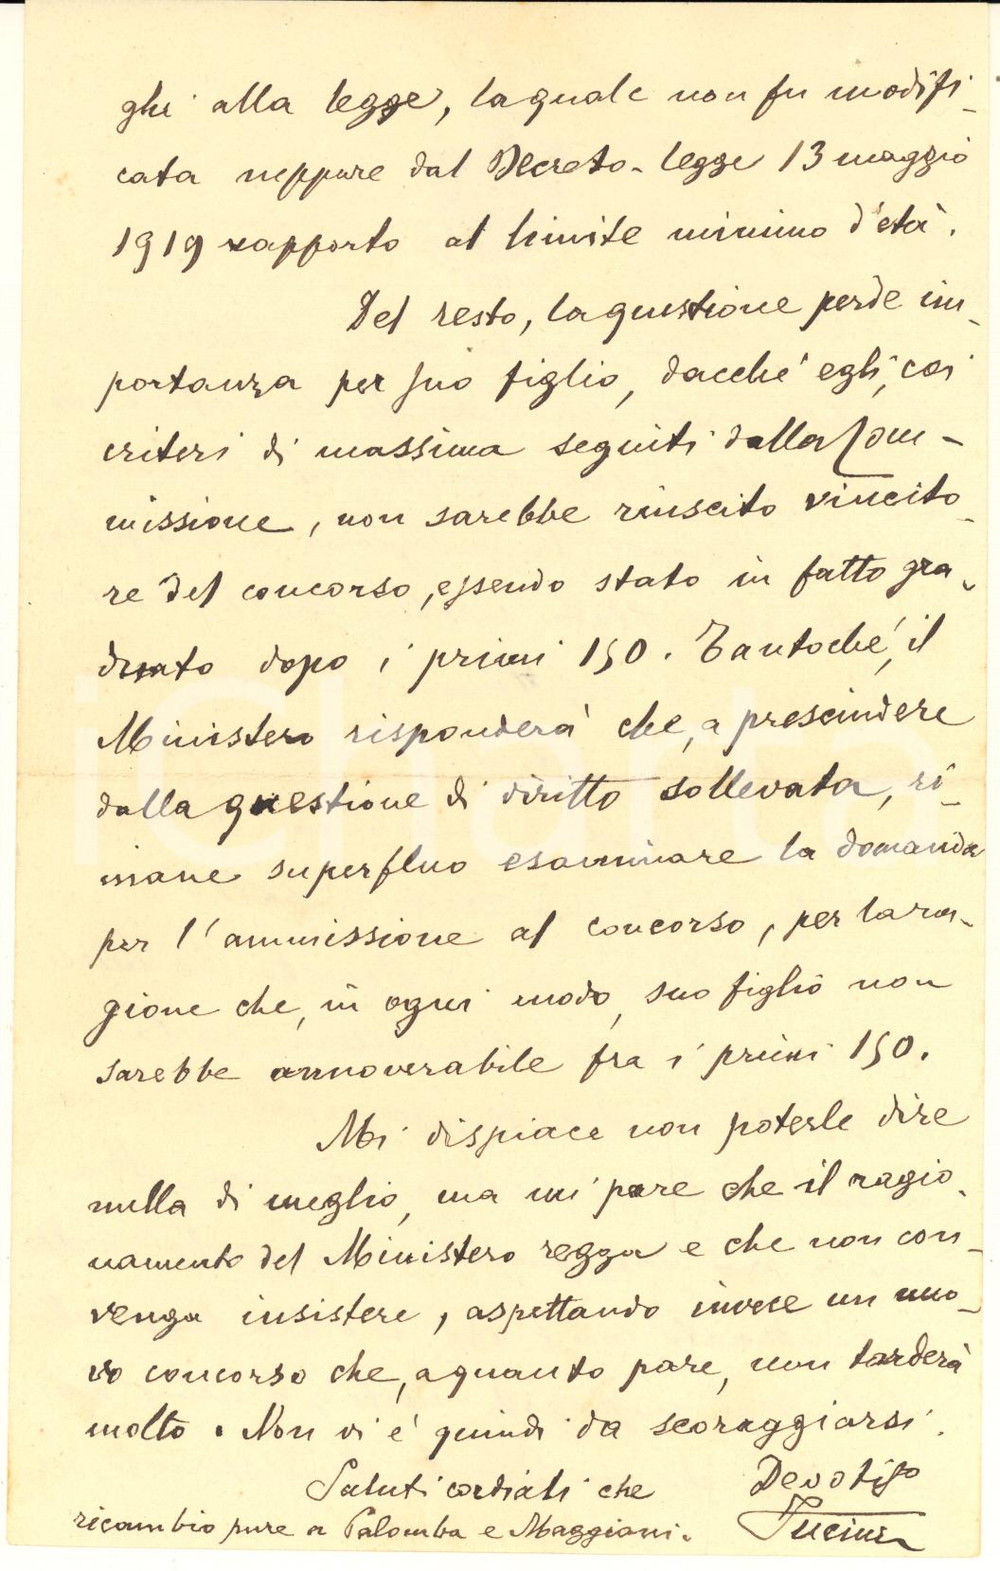 ghi alla legge, la quale non fu modifi-
cata neppure dal Decreto-legge 13 maggio
1919 rapporto al limite minimo d'età.
Del resto, la questione perde im-
portanza per suo figlio, dacché egli, coi
criteri di massima seguiti dalla Com-
missione, non sarebbe riuscito vincito-
re del concorso, essendo stato in fatto gra-
duato dopo i primi 150. Tantoché, il
Ministero risponderà che, a prescindere
dalla questione di diritto sollevata, ri-
mane superfluo esaminare la domanda
per l'ammissione al concorso, per la ra-
gione che, in ogni modo, suo figlio non
sarebbe annoverabile fra i primi 150.
Mi dispiace non poterle dire
nulla di meglio, ma mi pare che il ragio-
namento del Ministero regga e che non con-
venga insistere, aspettando invece un nuo-
vo concorso che, a quanto pare, non tarderà
molto. Non vi è quindi da scoraggiarsi.
Saluti cordiali che Devotisso
ricambio pure a Palomba e Maggiani.